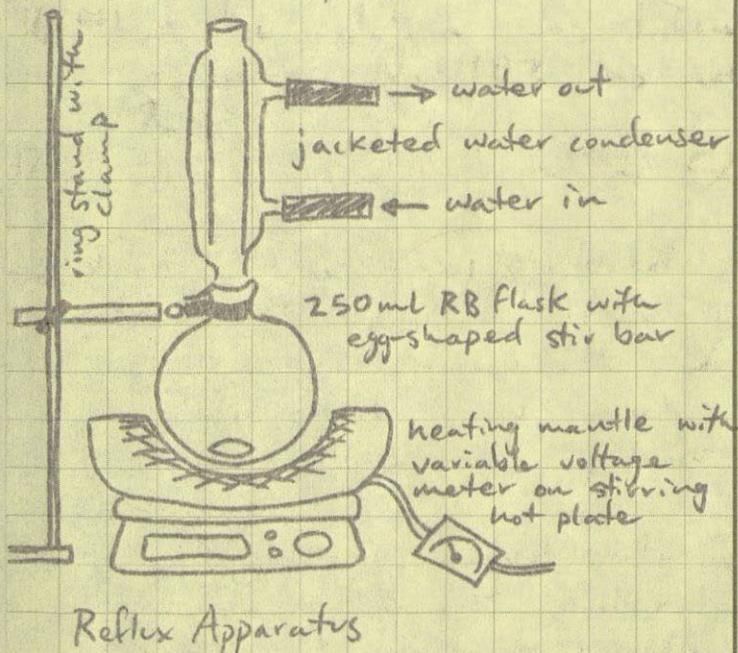 ring stand with
clamp
water out
jacketed water condenser
water in
250ml RB flask with
egg-shaped stir bar
heating mantle with
variable voltage
meter on stirring
hot plate
Reflux Apparatus